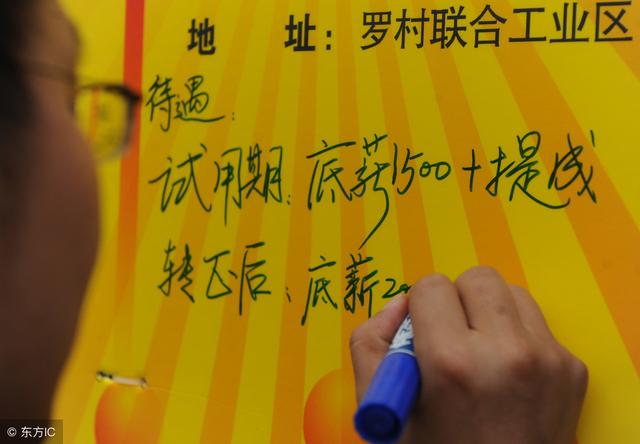 地 址：罗村联合工业区
待遇：
试用期：底薪1500+提成
转正后：底薪2
© 东方IC